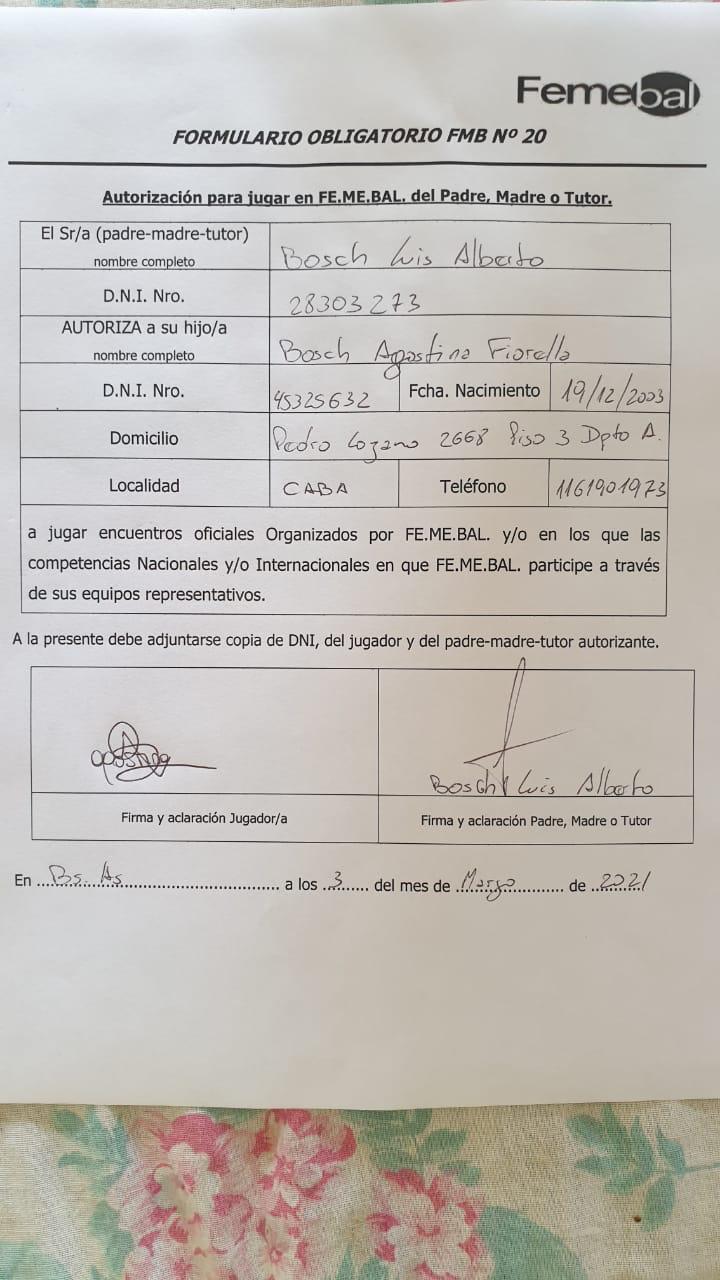 Femebal
FORMULARIO OBLIGATORIO FMB Nº 20
Autorización para jugar en FE.ME.BAL. del Padre, Madre o Tutor.
El Sr/a (padre-madre-tutor)
nombre completo
Bosch Luis Alberto
D.N.I. Nro.
28303273
AUTORIZA a su hijo/a
nombre completo
Bosch Agostina Fiorella
D.N.I. Nro. 45325632 Fcha. Nacimiento 19/12/2003
Domicilio Pedro Lozano 2668 Piso 3 Dpto A.
Localidad CABA Teléfono 1161901973
a jugar encuentros oficiales Organizados por FE.ME.BAL. y/o en los que las
competencias Nacionales y/o Internacionales en que FE.ME.BAL. participe a través
de sus equipos representativos.
A la presente debe adjuntarse copia de DNI, del jugador y del padre-madre-tutor autorizante.
Bosch Luis Alberto
Firma y aclaración Jugador/a Firma y aclaración Padre, Madre o Tutor
En Bs. As a los 3 del mes de Marzo de 2021